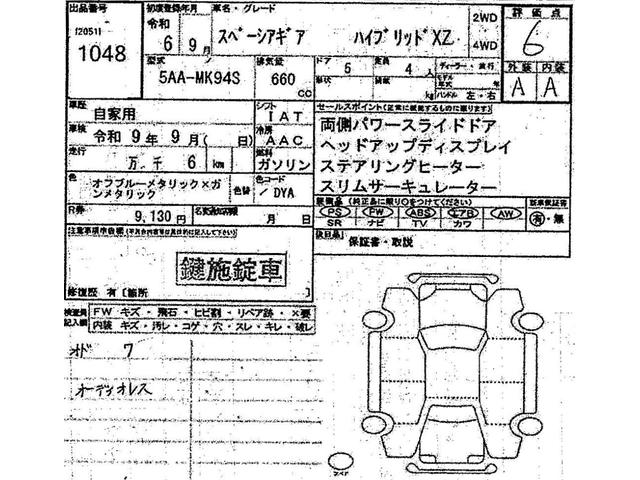 出品番号 初度登録年月 車名・グレード 2WD 評価点
[2051]
1048 令和 6年 9月 スペーシアギア ハイブリッドXZ 4WD 6
型式 排気量 ドア 定員 ディーラー・並行 外装 内装
5AA-MK94S 660 CC 5 4人 A A
形状 積載 kg モデル年式 年
ハンドル 左・右
車歴 自家用 シフト IAT セールスポイント(正常に威能するものに限ります)
車検 令和 9年 9月( 日) 冷房 AAC 両側パワースライドドア
走行 万 千 6 km 燃料 ガソリン ヘッドアップディスプレイ
ステアリングヒーター
色 オフブルーメタリック×ガンメタリック 色替 色コード / DYA スリムサーキュレーター
R券 9,130円 名変通知期限 月 日
装備品(純正品に限り○をつけてください) 新車保証書
PS PW ABS エアB AW 有・無
SR ナビ TV カワ
注意事項申告欄
後日品 保証書・取説
鍵施錠車
修復歴 有〔箇所 〕
検査員記入欄 FW キズ・飛石・ヒビ割・リペア跡・×要
内装 キズ・汚レ・コゲ・穴・スレ・キレ・破レ
オド 7
オーディオレス
スペア